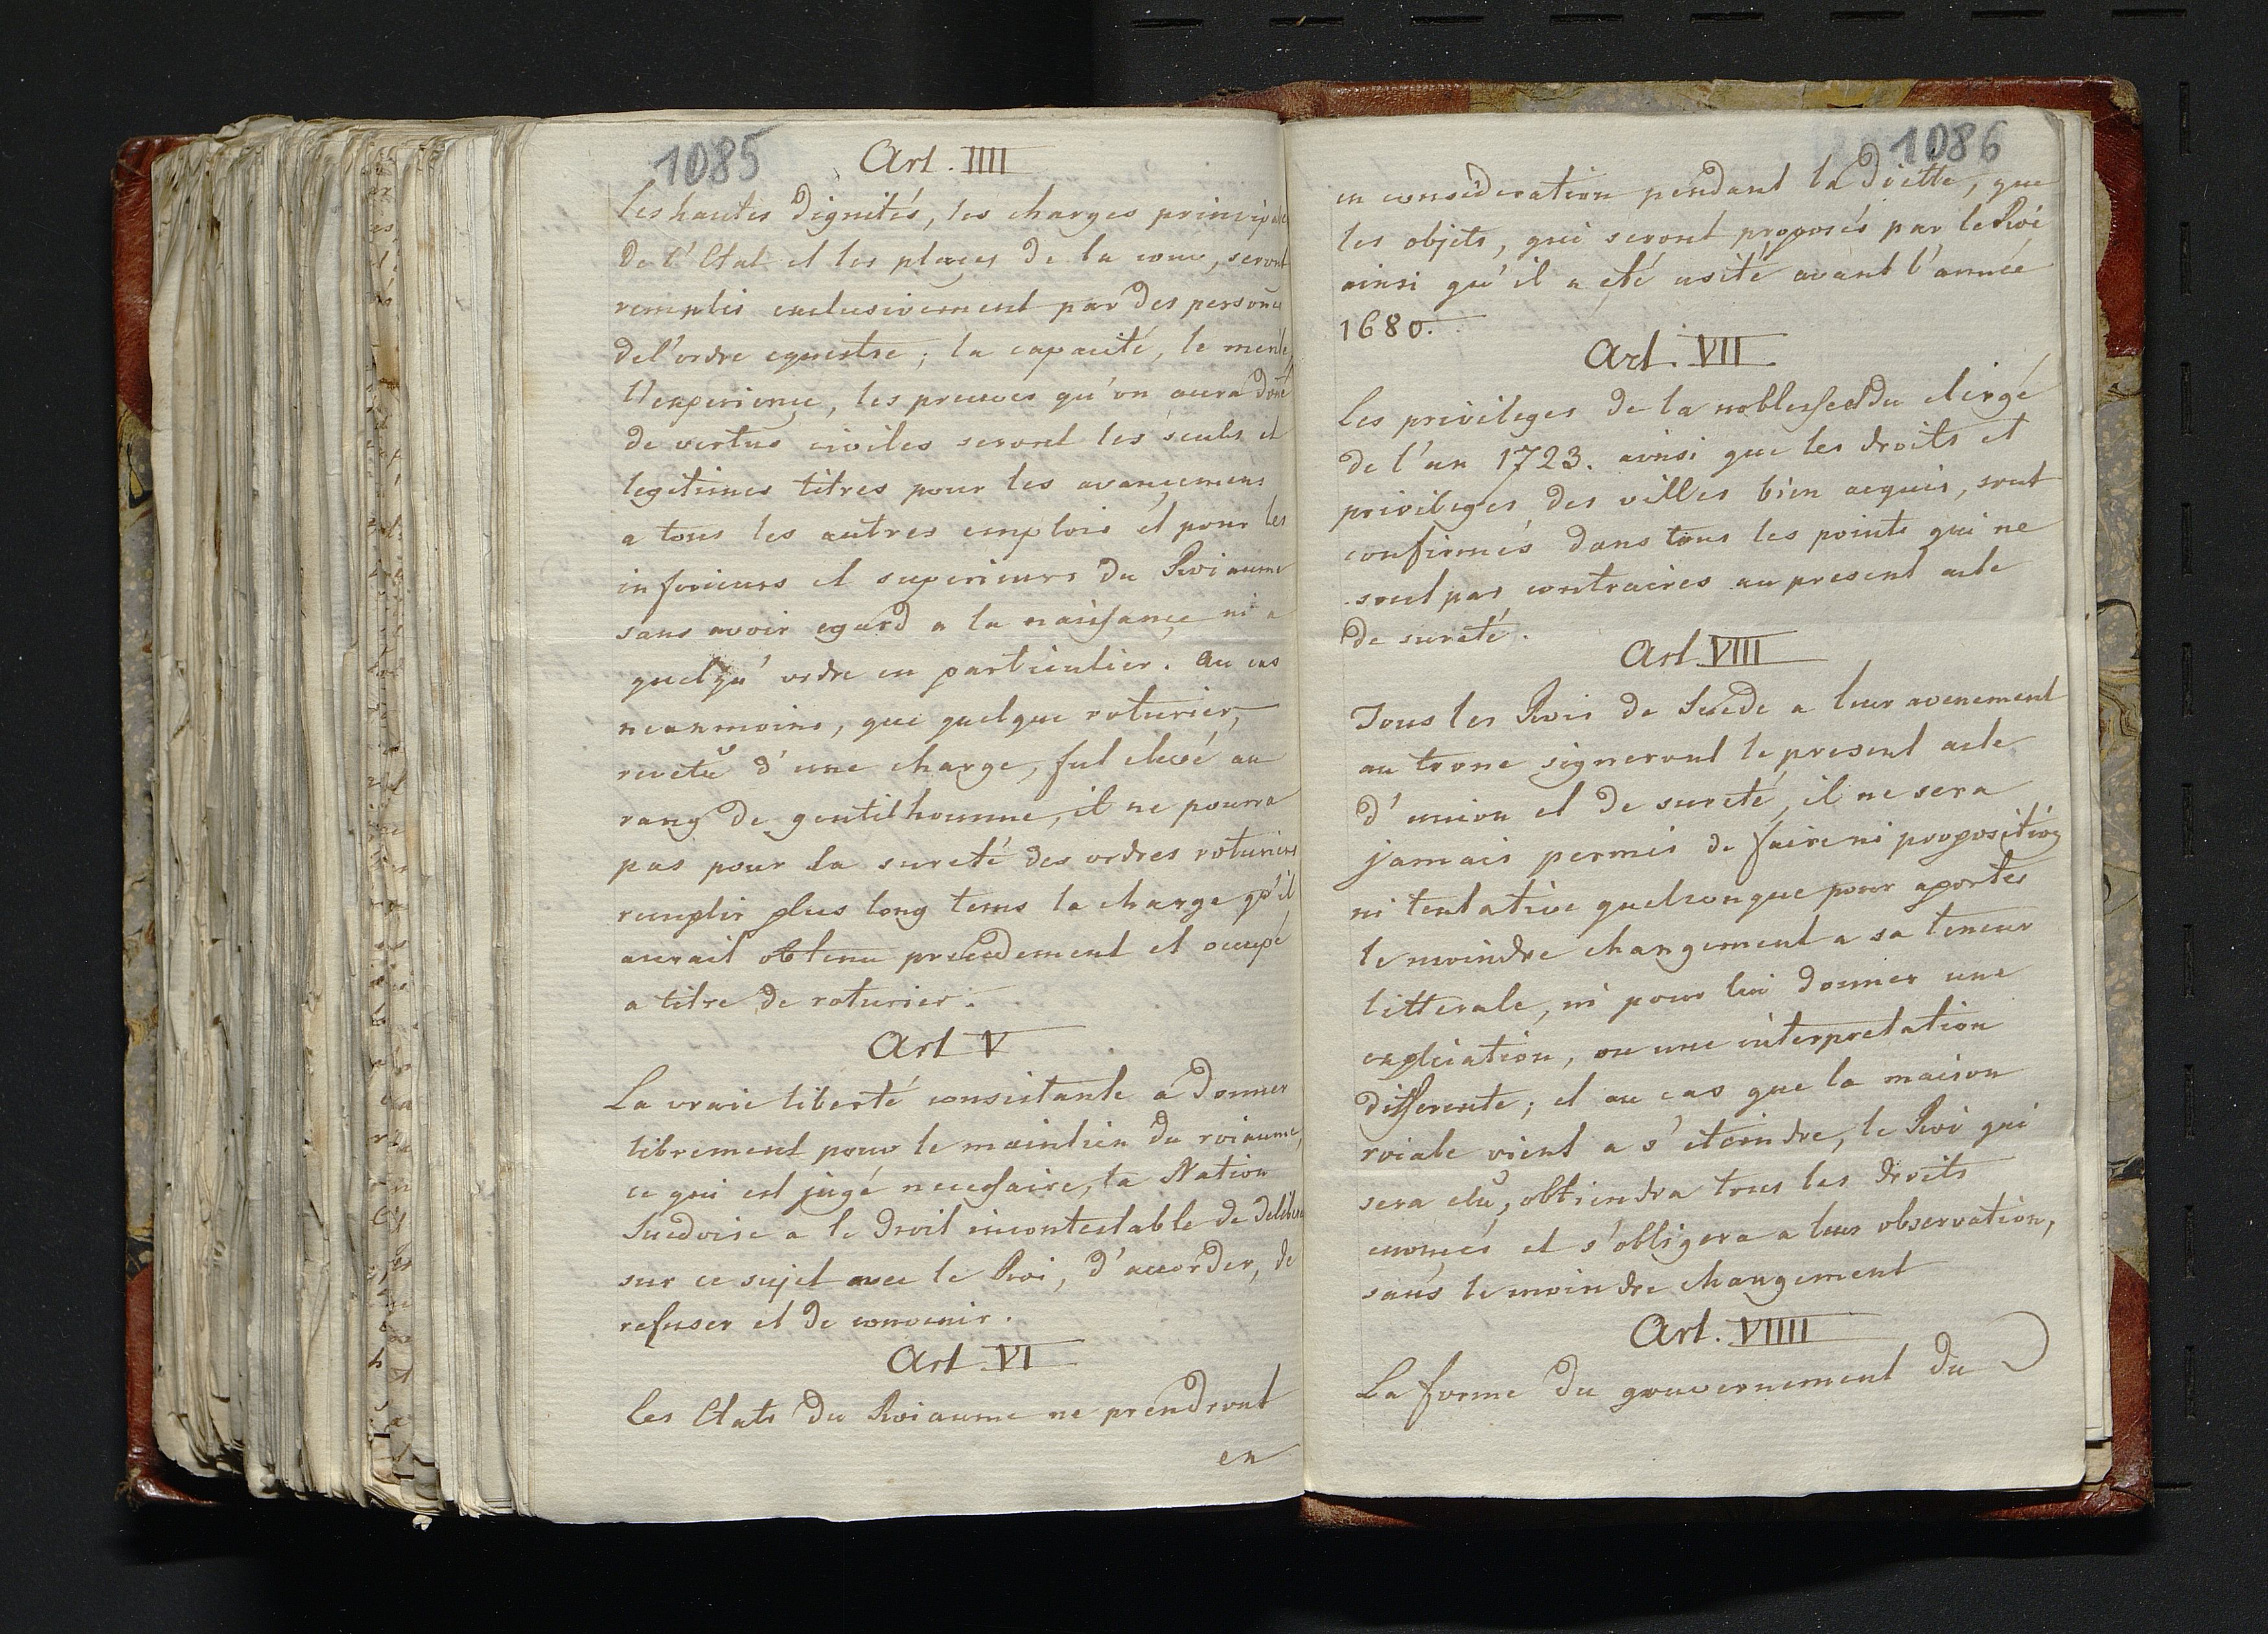 1085
Art. IIII
Les hautes dignités, les charges principales
de l'Etat et les places de la cour, seront
remplis exclusivement par des persones
de l'ordre equestre; la capacité, le merite,
l'experience, les preuves qu'on aura doné
de vertus civiles seront les seuls et
legitimes titres pour les avancemens
a tous les autres emplois et pour les
inferieurs et superieurs du Roiaume
sans avoir egard a la naissance ni a
quelqu' ordre en particulier. Au cas
neanmoins, que quelque roturier,
revetu d'une charge, fut elevé au
rang de gentilhomme, il ne pourra
pas pour la sureté des ordres roturiers
remplir plus long tems la charge qu'il
aurait obtenu precedement et occupé
a titre de roturier.
Art V
La vraie liberté consistante a donner
librement pour le maintien du roiaume,
ce qui est jugé necessaire, la Nation
Suedoise a le droit incontestable de deliberer
sur ce sujet avec le Roi, d'accorder, de
refuser et de convenir.
Art. VI
Les Etats du Roiaume ne prendront
en
1086
en consideration pendant la diette, que
les objets, qui seront proposés par le Roi
ainsi qu'il a eté usité avant l'année
1680.
Art. VII
Les privileges de la noblesse et du clergé
de l'an 1723. ainsi que les droits et
privileges des villes bien acquis, sont
confirmés dans tous les points qui ne
sont pas contraires au present acte
de sureté.
Art. VIII
Tous les Rois de Suede a leur avenement
au trone signeront le present acte
d'union et de sureté, il ne sera
jamais permis de faire ni proposition
ni tentative quelconque pour aporter
le moindre changement a sa teneur
litterale, ni pour lui donner une
expliciation, ou une interpretation
differente; et au cas que la maison
roiale vient a s'eteindre, le Roi qui
sera elu, obtiendra tous les droits
enonçés et s'obligera a leur observation,
sans le moindre changement
Art. VIIII
La forme du gouvernement du